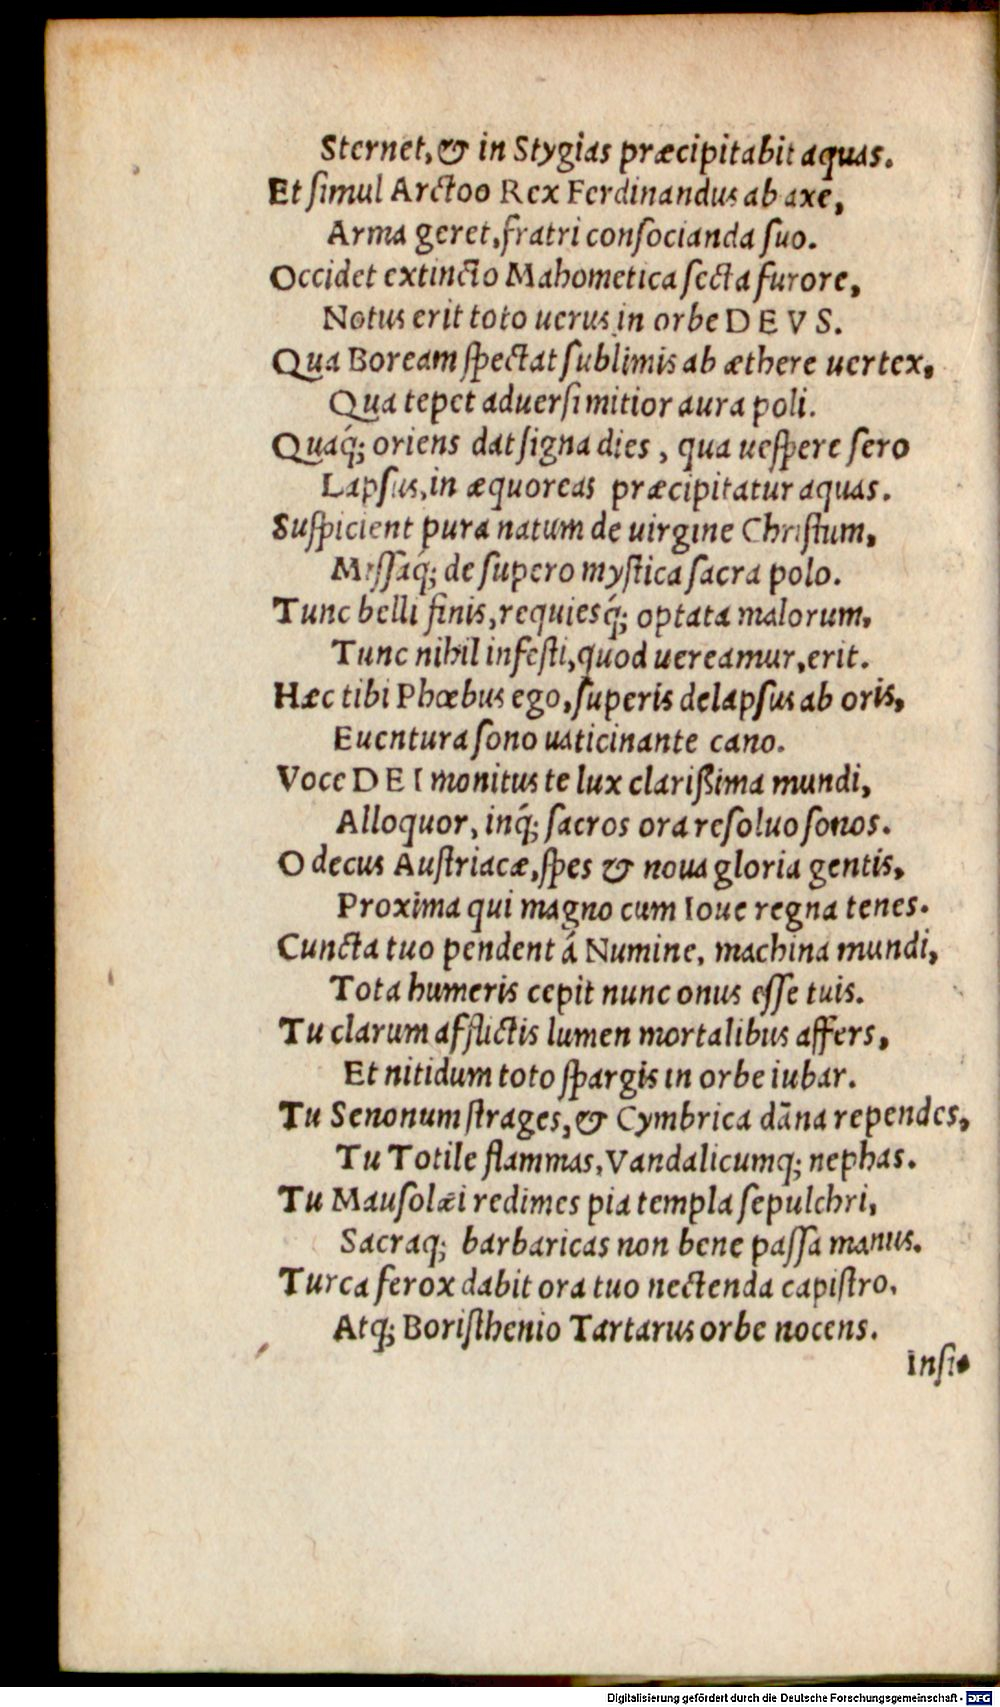 Sternet, & in Stygias præcipitabit aquas.
Et ſimul Arctoo Rex Ferdinandus ab axe,
Arma geret, fratri conſocianda ſuo.
Occidet extincto Mahometica ſecta furore,
Notus erit toto uerus in orbe DEVS.
Qua Boream ſpectat ſublimis ab æthere uertex,
Qua tepet aduerſi mitior aura poli.
Quaq́; oriens dat ſigna dies, qua ueſpere ſero
Lapſus, in æquoreas præcipitatur aquas.
Suſpicient pura natum de uirgine Chriſtum,
Miſſaq́; de ſupero myſtica ſacra polo.
Tunc belli finis, requiesq́; optata malorum,
Tunc nihil infeſti, quod uereamur, erit.
Hæc tibi Phœbus ego, ſuperis delapſus ab oris,
Euentura ſono uaticinante cano.
Voce DEI monitus te lux clarißima mundi,
Alloquor, inq́; ſacros ora reſoluo ſonos.
O decus Auſtriacæ, ſpes & noua gloria gentis,
Proxima qui magno cum Ioue regna tenes.
Cuncta tuo pendent á Numine, machina mundi,
Tota humeris cepit nunc onus eſſe tuis.
Tu clarum afflictis lumen mortalibus affers,
Et nitidum toto ſpargis in orbe iubar.
Tu Senonum ſtrages, & Cymbrica dāna rependes,
Tu Totile flammas, Vandalicumq; nephas.
Tu Mauſolæi redimes pia templa ſepulchri,
Sacraq; barbaricas non bene paſſa manus.
Turca ferox dabit ora tuo nectenda capiſtro,
Atq; Boriſthenio Tartarus orbe nocens.
Inſi-
Digitalisierung gefördert durch die Deutsche Forschungsgemeinschaft - DFG